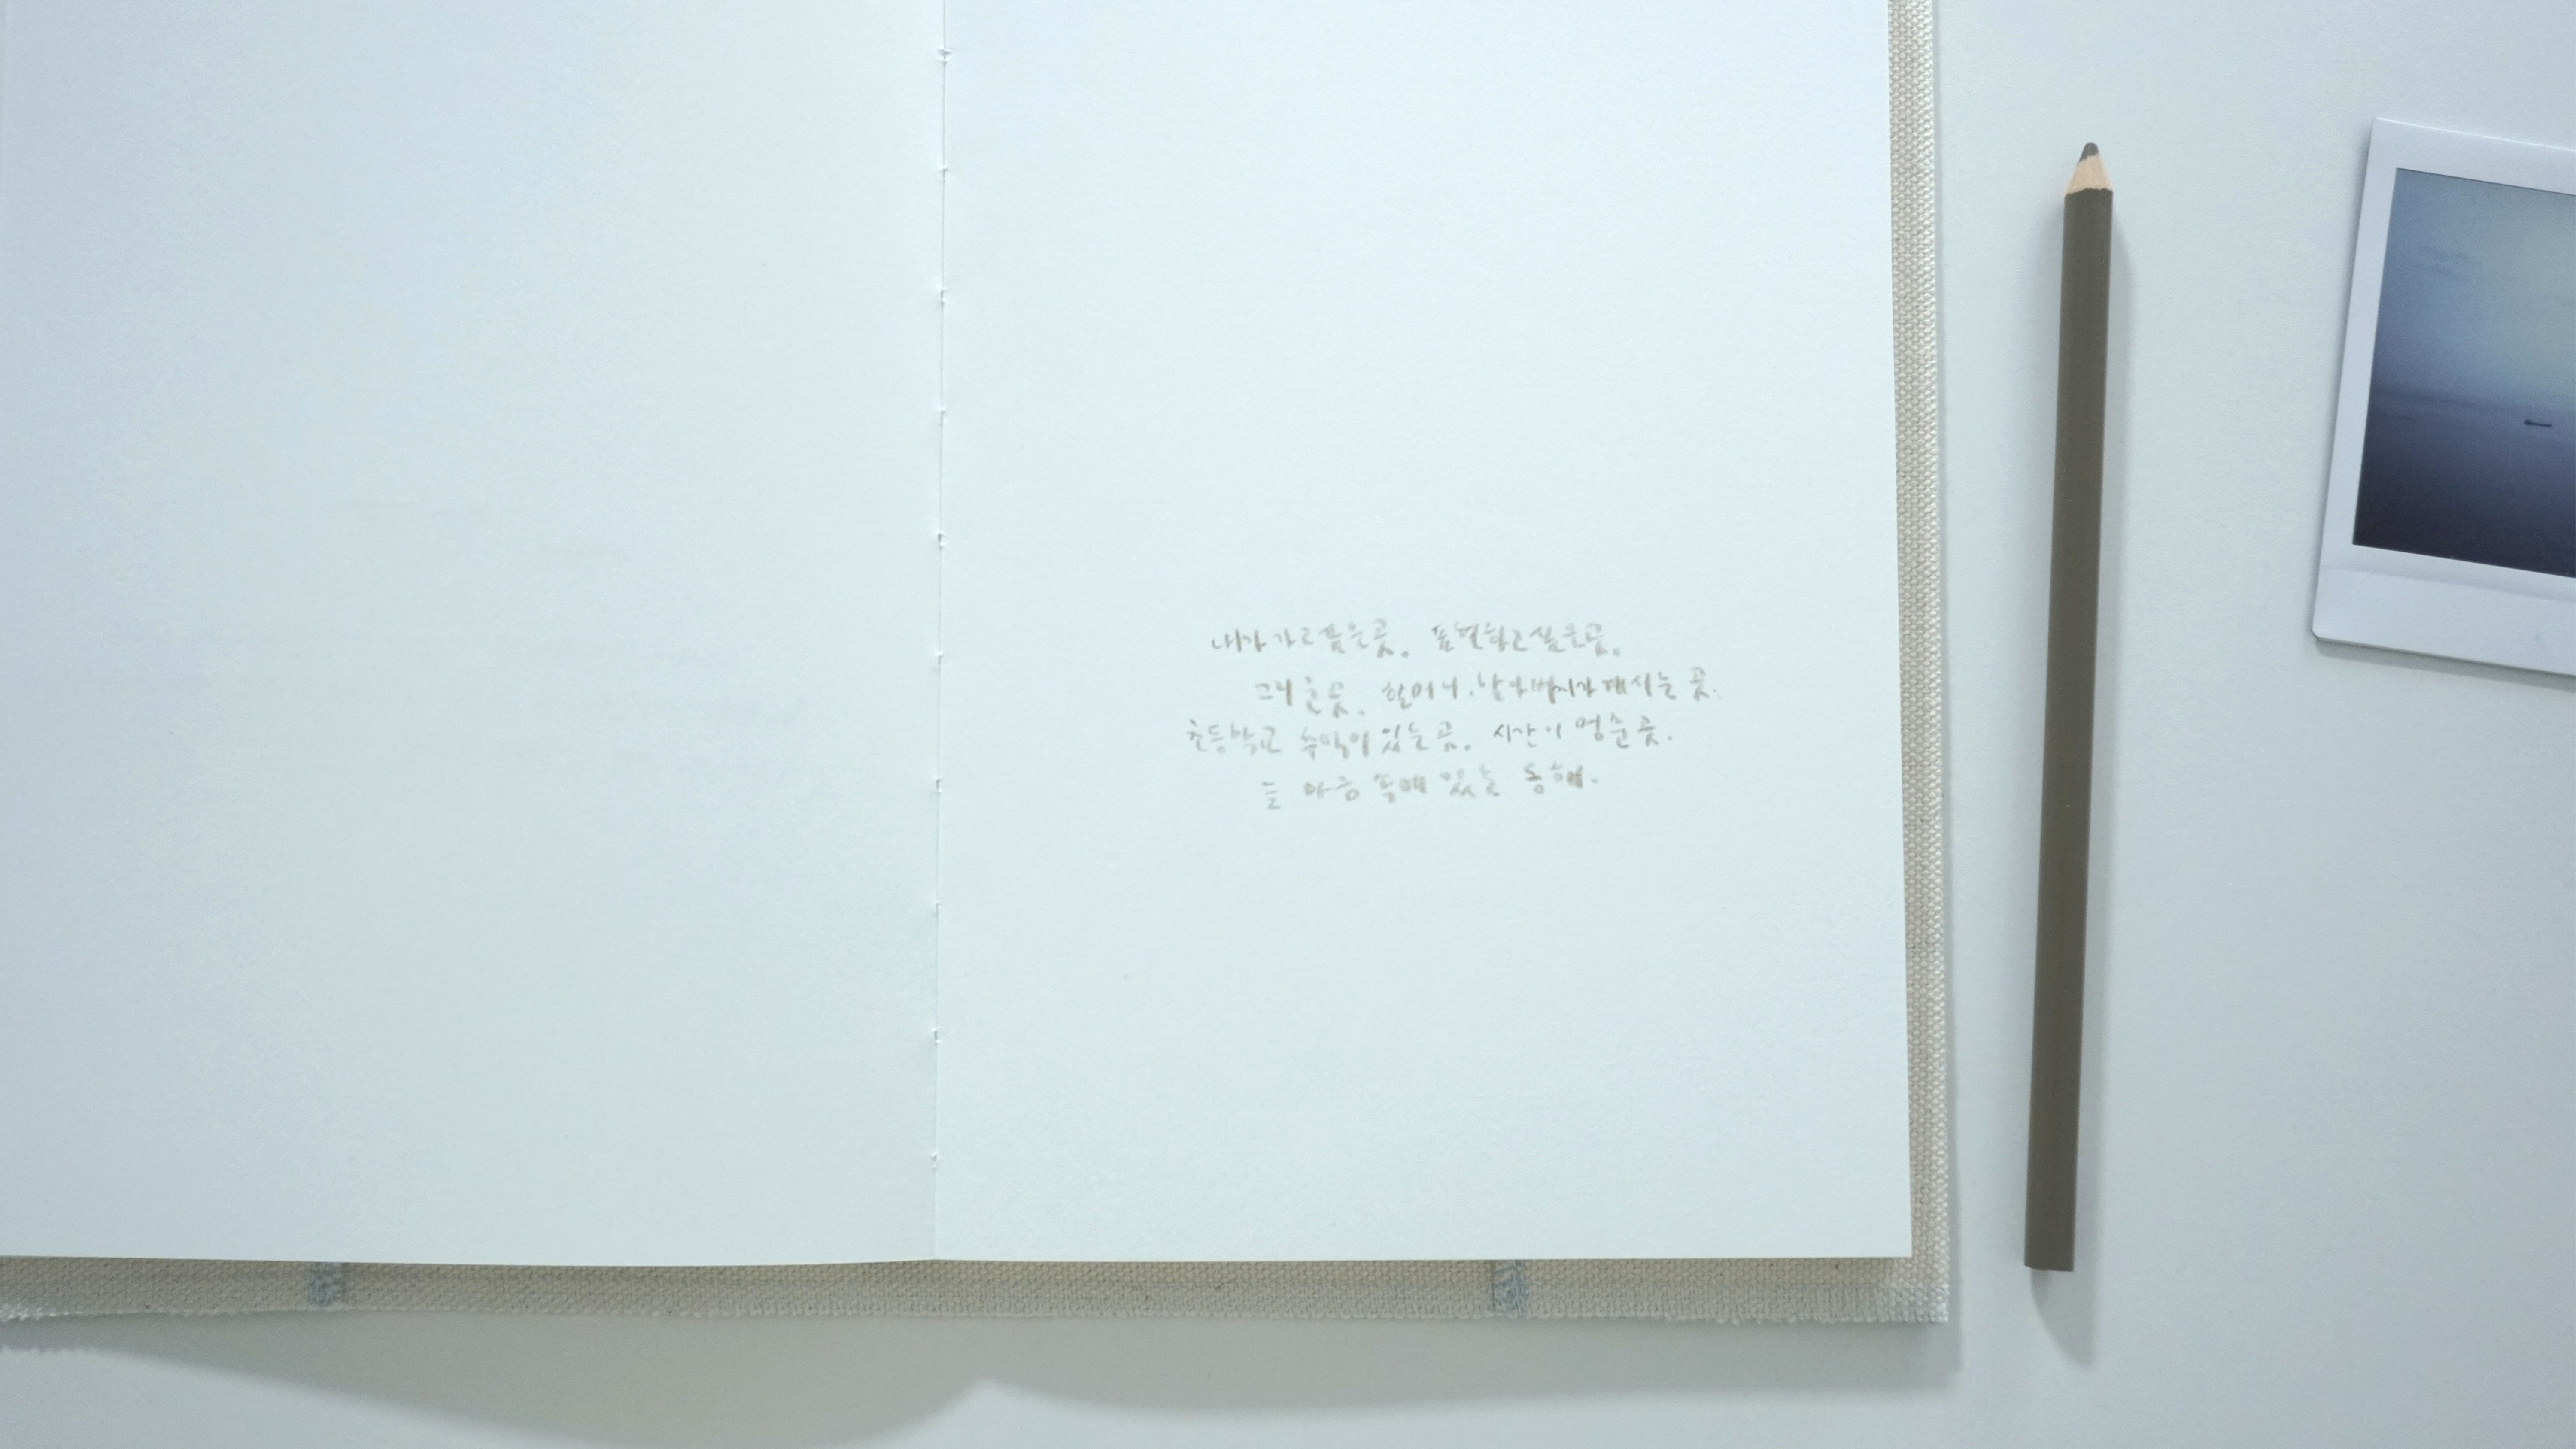 내가 가고픔은곳. 표현하고싶은곳.
그리운곳. 할머니.할아버지가 계시는 곳.
초등학교 추억이 있는곳. 시간이 멈춘 곳.
늘 마음 속에 있는 동해.